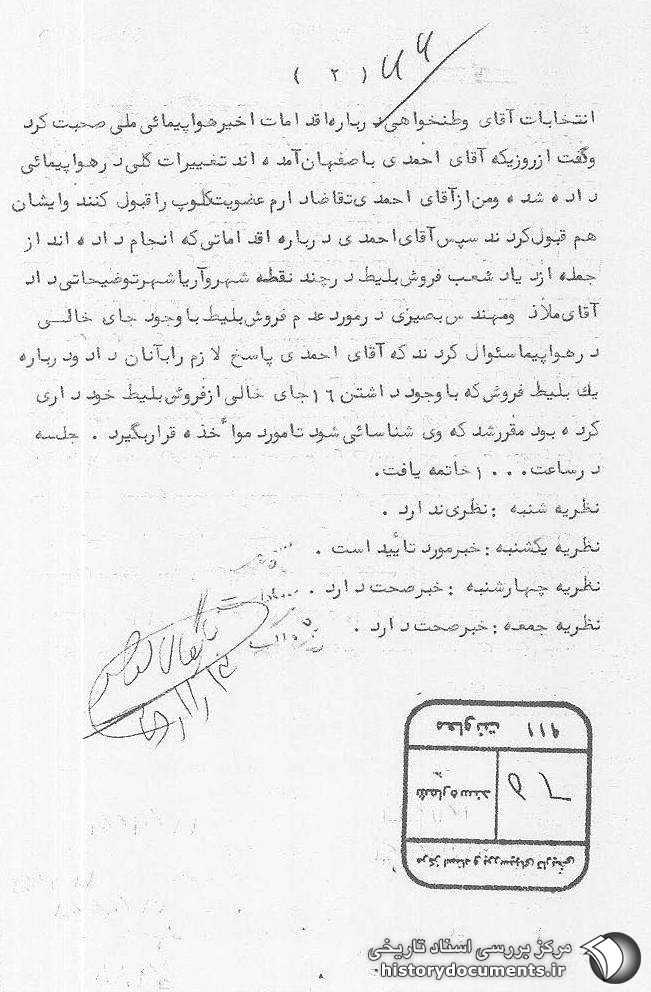 ( ٢ )
انتخابات آقای وطنخواهی درباره اقدامات اخیر هواپیمائی ملی صحبت کرد
وگفت ازروزیکه آقای احمدی باصفهان آمده اند تغییرات کلی در هواپیمائی
داده شده ومن ازآقای احمدی تقاضادارم عضویت کلوپ راقبول کنند وایشان
هم قبول کردند سپس آقای احمدی درباره اقداماتی که انجام داده اند از
جمله ازدیاد شعب فروش بلیط درچند نقطه شهروآریاشهرتوضیحاتی داد
آقای ملاذ ومهندس بصیری درمورد عدم فروش بلیط باوجود جای خالی
درهواپیماسئوال کردند که آقای احمدی پاسخ لازم رابآنان داد ودرباره
یك بلیط فروش که باوجود داشتن ١٦جای خالی ازفروش بلیط خودداری
کرده بود مقررشد که وی شناسائی شود تامورد مواٌخذه قراربگیرد . جلسه
درساعت ١٠٠٠ خاتمه یافت.
نظریه شنبه : نظری ندارد .
نظریه یکشنبه : خبرمورد تاٌیید است .
نظریه چهارشنبه : خبرصحت دارد .
نظریه جمعه : خبرصحت دارد .
معاونت ٩١١
شماره سند
مرکز اسناد و بررسیهای تاریخی
مرکز بررسی اسناد تاریخی
historydocuments.ir